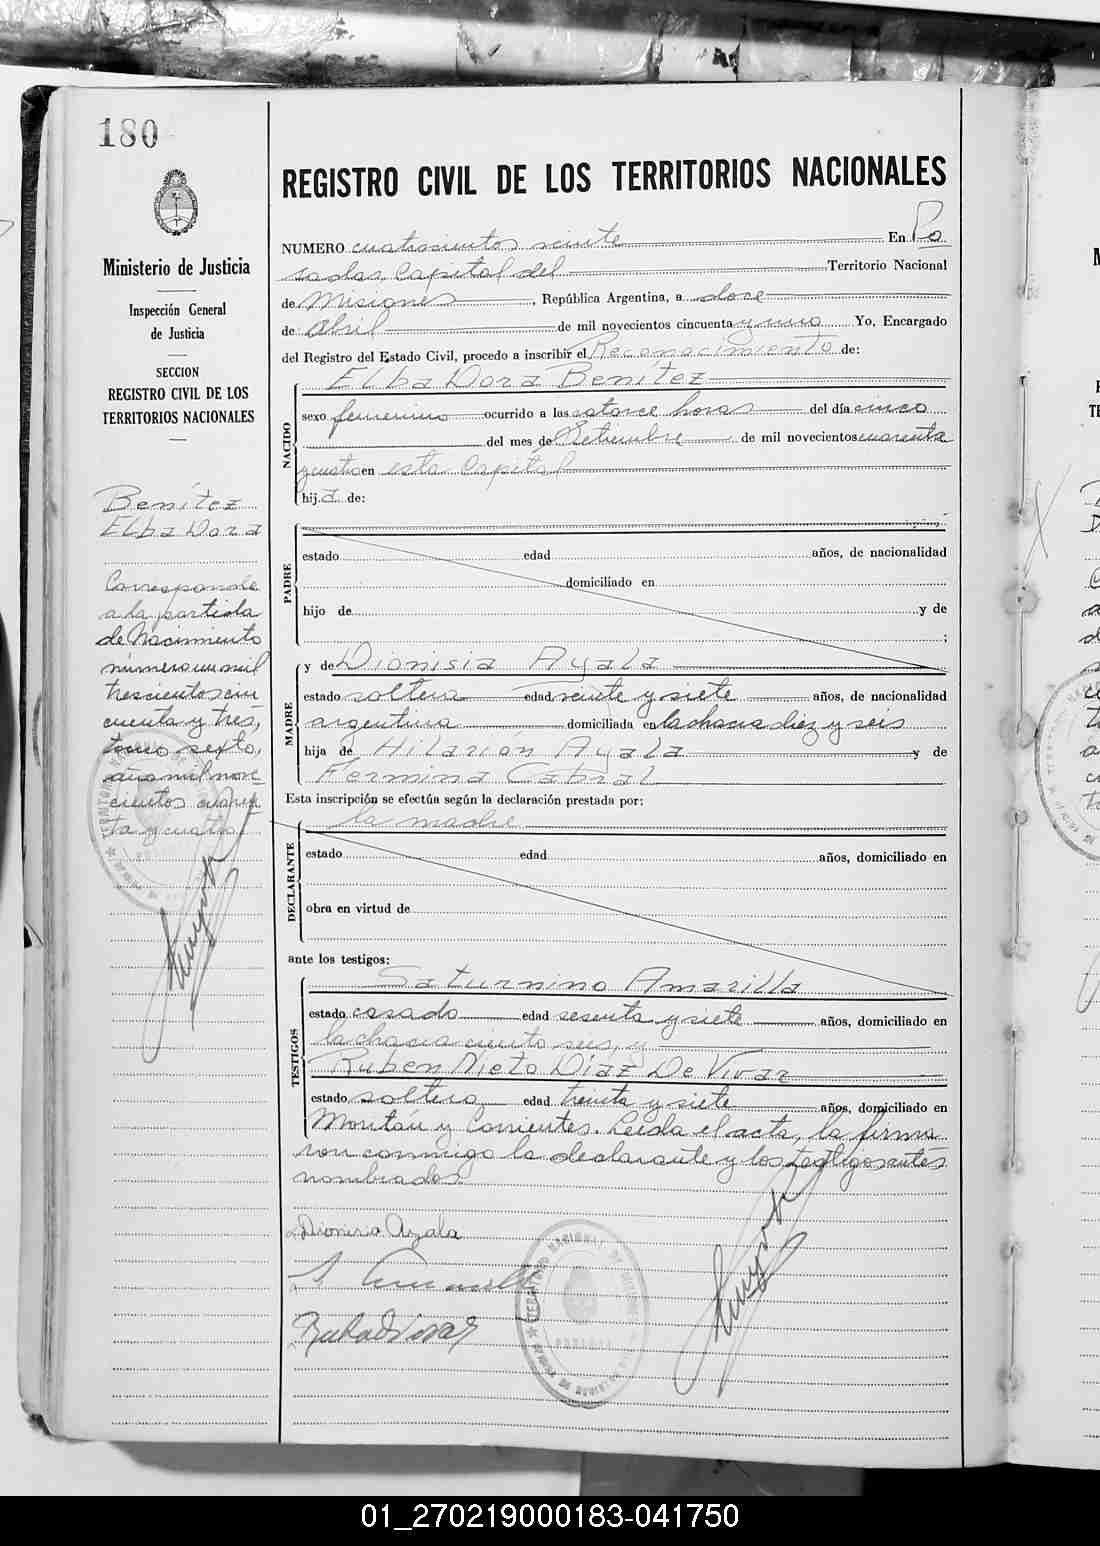 180
Ministerio de Justicia
Inspección General
de Justicia
SECCION
REGISTRO CIVIL DE LOS
TERRITORIOS NACIONALES
Benítez
Elba Dora
Corresponde
a la partida
de Nacimiento
número un mil
trescientos cin
cuenta y tres,
tomo sexto,
año mil nove
cientos cuaren
ta y cuatro.
REGISTRO CIVIL DE LOS TERRITORIOS NACIONALES
NUMERO cuatrocientos veinte En Po
sadas, Capital del Territorio Nacional
de Misiones, República Argentina, a doce
de Abril de mil novecientos cincuenta y uno Yo, Encargado
del Registro del Estado Civil, procedo a inscribir el Reconocimiento de:
NACIDO
Elba Dora Benítez
sexo femenino ocurrido a las catorce horas del día cinco
del mes de Setiembre de mil novecientos cuarenta
y cuatro en esta Capital
hija de:
PADRE
estado edad años, de nacionalidad
domiciliado en
hijo de y de
;
MADRE
y de Dionisia Ayala
estado soltera edad veinte y siete años, de nacionalidad
argentina domiciliada en la chacra diez y seis
hija de Hilarión Ayala y de
Fermina Cabral
Esta inscripción se efectúa según la declaración prestada por:
DECLARANTE
la madre
estado edad años, domiciliado en
obra en virtud de
ante los testigos:
TESTIGOS
Saturnino Amarilla
estado casado edad sesenta y siete años, domiciliado en
la chacra ciento seis, y
Ruben Nieto Díaz De Vivar
estado soltero edad treinta y siete años, domiciliado en
Moritán y Corrientes. Leída el acta, la firma
ron conmigo la declarante y los testigos antes
nombrados.
Dionisia Ayala
01_270219000183-041750